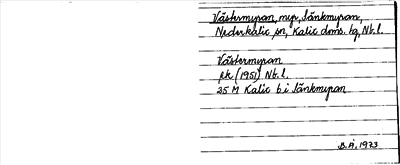 Västermyran, myr, Sänkmyran,
Nederkalix sn, Kalix dms. tg, Nb. l.
Västermyran
ek (1951) Nb. l.
25 M Kalix b i Sänkmyran
B.Å. 1973